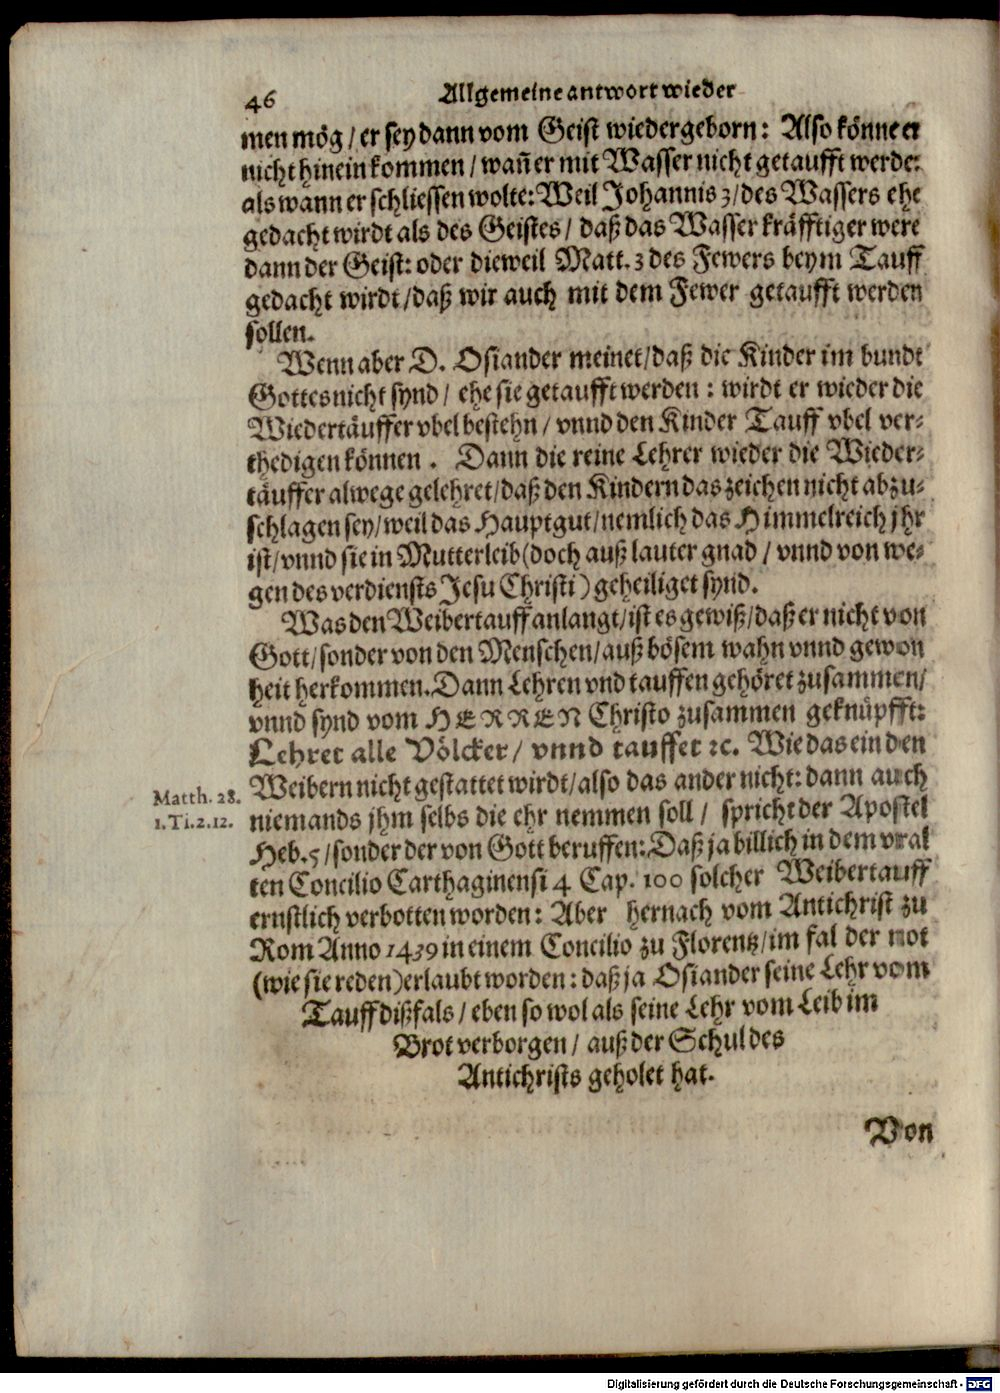 46 Allgemeine antwort wieder
men mög / er sey dann vom Geist wiedergeborn: Also könne er
nicht hinein kommen / wañ er mit Wasser nicht getaufft werde:
als wann er schliessen wolte: Weil Johannis 3/ des Wassers ehe
gedacht wirdt als des Geistes / daß das Wasser kräfftiger were
dann der Geist: oder dieweil Matt. 3 des Fewers beym Tauff
gedacht wirdt / daß wir auch mit dem Fewer getaufft werden
sollen.
Wenn aber D. Osiander meinet / daß die Kinder im bundt
Gottes nicht synd / ehe sie getaufft werden : wirdt er wieder die
Wiedertäuffer vbel bestehn / vnnd den Kinder Tauff vbel ver-
thedigen können . Dann die reine Lehrer wieder die Wieder-
täuffer alwege gelehret / daß den Kindern das zeichen nicht abzu-
schlagen sey / weil das Hauptgut / nemlich das Himmelreich jhr
ist / vnnd sie in Mutterleib (doch auß lauter gnad / vnnd von we-
gen des verdiensts Jesu Christi ) geheiliget synd.
Was den Weibertauff anlangt / ist es gewiß / daß er nicht von
Gott / sonder von den Menschen / auß bösem wahn vnnd gewon
heit herkommen. Dann Lehren vnd tauffen gehöret zusammen /
vnnd synd vom HERREN Christo zusammen geknüpfft:
Lehret alle Völcker / vnnd tauffet ꝛc. Wie das ein den
Weibern nicht gestattet wirdt / also das ander nicht: dann auch
Matth. 28.
1. Ti. 2. 12.
niemands jhm selbs die ehr nemmen soll / spricht der Apostel
Heb. 5 / sonder der von Gott beruffen: Daß ja billich in dem vral
ten Concilio Carthaginensi 4 Cap. 100 solcher Weibertauff
ernstlich verbotten worden: Aber hernach vom Antichrist zu
Rom Anno 1439 in einem Concilio zu Florentz / im fal der not
(wie sie reden) erlaubt worden: daß ja Osiander seine Lehr vom
Tauff dißfals / eben so wol als seine Lehr vom Leib im
Brot verborgen / auß der Schul des
Antichrists geholet hat.
Von
Digitalisierung gefördert durch die Deutsche Forschungsgemeinschaft - DFG